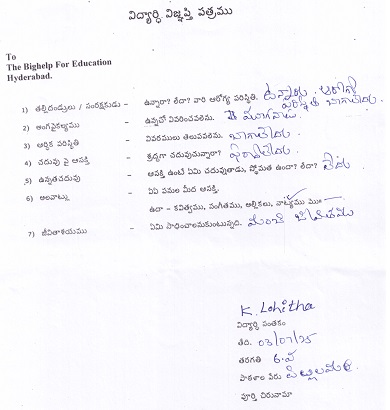 విద్యార్థి విజ్ఞప్తి పత్రము
To
The Bighelp For Education
Hyderabad.
1) తల్లిదండ్రులు / సంరక్షకుడు – ఉన్నారా? లేదా? వారి ఆరోగ్య పరిస్థితి. ఉన్నారు. ఆరోగ్య పరిస్థితి బాగాలేదు
2) అంగవైకల్యము – ఉన్నచో వివరించవలెను.
3) ఆర్థిక పరిస్థితి – వివరములు తెలుపవలెను. బాగాలేదు
4) చదువు పై ఆసక్తి – శ్రద్ధగా చదువుచున్నారా?
5) ఉన్నతచదువు – ఆసక్తి ఉంటే ఏమి చదువుతాడు, స్తోమత ఉందా? లేదా? లేదు
6) అలవాట్లు – ఏఏ పనుల మీద ఆసక్తి.
ఉదా – కవిత్వము, సంగీతము, అల్లికలు, నాట్యము
7) జీవితాశయము – ఏమి సాధించాలనుకుంటున్నది. మంచి జీవితము
K. Lohitha
విద్యార్థి సంతకం
తేది. 03/07/25
తరగతి 6.వ
పాఠశాల పేరు పిల్లలమర్రి.
పూర్తి చిరునామా